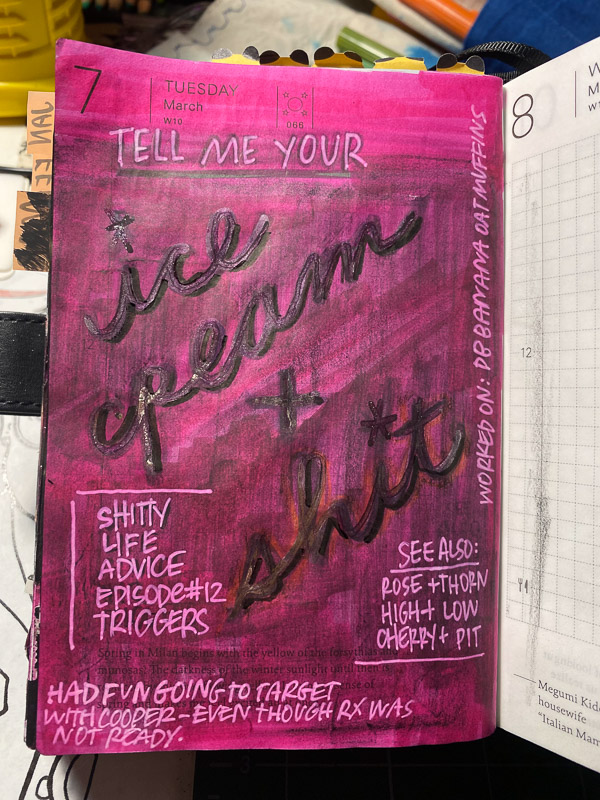 7
TUESDAY
March
W10
066
TELL ME YOUR
ice
cream
+
shit
WORKED ON: PB BANANA OAT MUFFINS
SHITTY
LIFE
ADVICE
EPISODE #12
TRIGGERS
SEE ALSO:
ROSE + THORN
HIGH + LOW
CHERRY + PIT
Spring in Milan begins with the yellow of the forsythias and
mimosas. The darkness of the winter sunlight until then is
sense of
HAD FUN GOING TO TARGET
WITH COOPER - EVEN THOUGH RX WAS
NOT READY.
JAN
8
W
M
W1
12
Megumi Kid
housewife
"Italian Mam